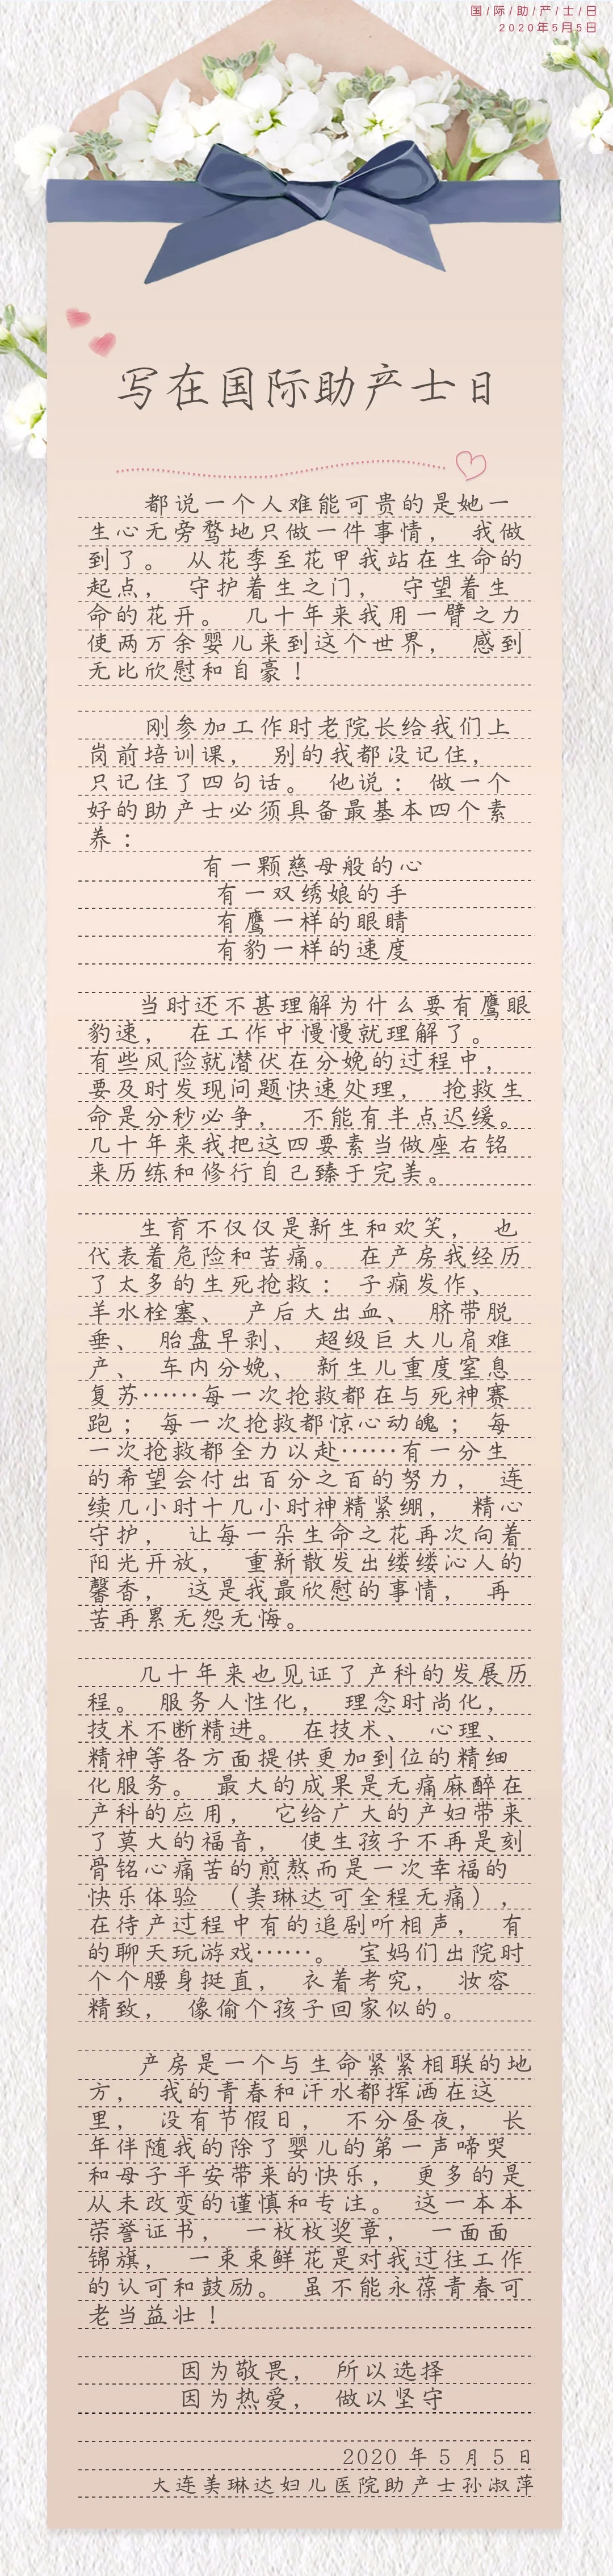 国/际/助/产/士/日
2020年5月5日
写在国际助产士日
都说一个人难能可贵的是她一
生心无旁骛地只做一件事情， 我做
到了。 从花季至花甲我站在生命的
起点， 守护着生之门， 守望着生
命的花开。 几十年来我用一臂之力
使两万余婴儿来到这个世界， 感到
无比欣慰和自豪！
刚参加工作时老院长给我们上
岗前培训课， 别的我都没记住，
只记住了四句话。 他说： 做一个
好的助产士必须具备最基本四个素
养：
有一颗慈母般的心
有一双绣娘的手
有鹰一样的眼睛
有豹一样的速度
当时还不甚理解为什么要有鹰眼
豹速， 在工作中慢慢就理解了。
有些风险就潜伏在分娩的过程中，
要及时发现问题快速处理， 抢救生
命是分秒必争， 不能有半点迟缓。
几十年来我把这四要素当做座右铭
来历练和修行自己臻于完美。
生育不仅仅是新生和欢笑， 也
代表着危险和苦痛。 在产房我经历
了太多的生死抢救： 子痫发作、
羊水栓塞、 产后大出血、 脐带脱
垂、 胎盘早剥、 超级巨大儿肩难
产、 车内分娩、 新生儿重度窒息
复苏……每一次抢救都在与死神赛
跑； 每一次抢救都惊心动魄； 每
一次抢救都全力以赴……有一分生
的希望会付出百分之百的努力， 连
续几小时十几小时神精紧绷， 精心
守护， 让每一朵生命之花再次向着
阳光开放， 重新散发出缕缕沁人的
馨香， 这是我最欣慰的事情， 再
苦再累无怨无悔。
几十年来也见证了产科的发展历
程。 服务人性化， 理念时尚化，
技术不断精进。 在技术、 心理、
精神等各方面提供更加到位的精细
化服务。 最大的成果是无痛麻醉在
产科的应用， 它给广大的产妇带来
了莫大的福音， 使生孩子不再是刻
骨铭心痛苦的煎熬而是一次幸福的
快乐体验 （美琳达可全程无痛），
在待产过程中有的追剧听相声， 有
的聊天玩游戏……。 宝妈们出院时
个个腰身挺直， 衣着考究， 妆容
精致， 像偷个孩子回家似的。
产房是一个与生命紧紧相联的地
方， 我的青春和汗水都挥洒在这
里， 没有节假日， 不分昼夜， 长
年伴随我的除了婴儿的第一声啼哭
和母子平安带来的快乐， 更多的是
从未改变的谨慎和专注。 这一本本
荣誉证书， 一枚枚奖章， 一面面
锦旗， 一束束鲜花是对我过往工作
的认可和鼓励。 虽不能永葆青春可
老当益壮！
因为敬畏， 所以选择
因为热爱， 做以坚守
2020 年 5 月 5 日
大连美琳达妇儿医院助产士孙淑萍